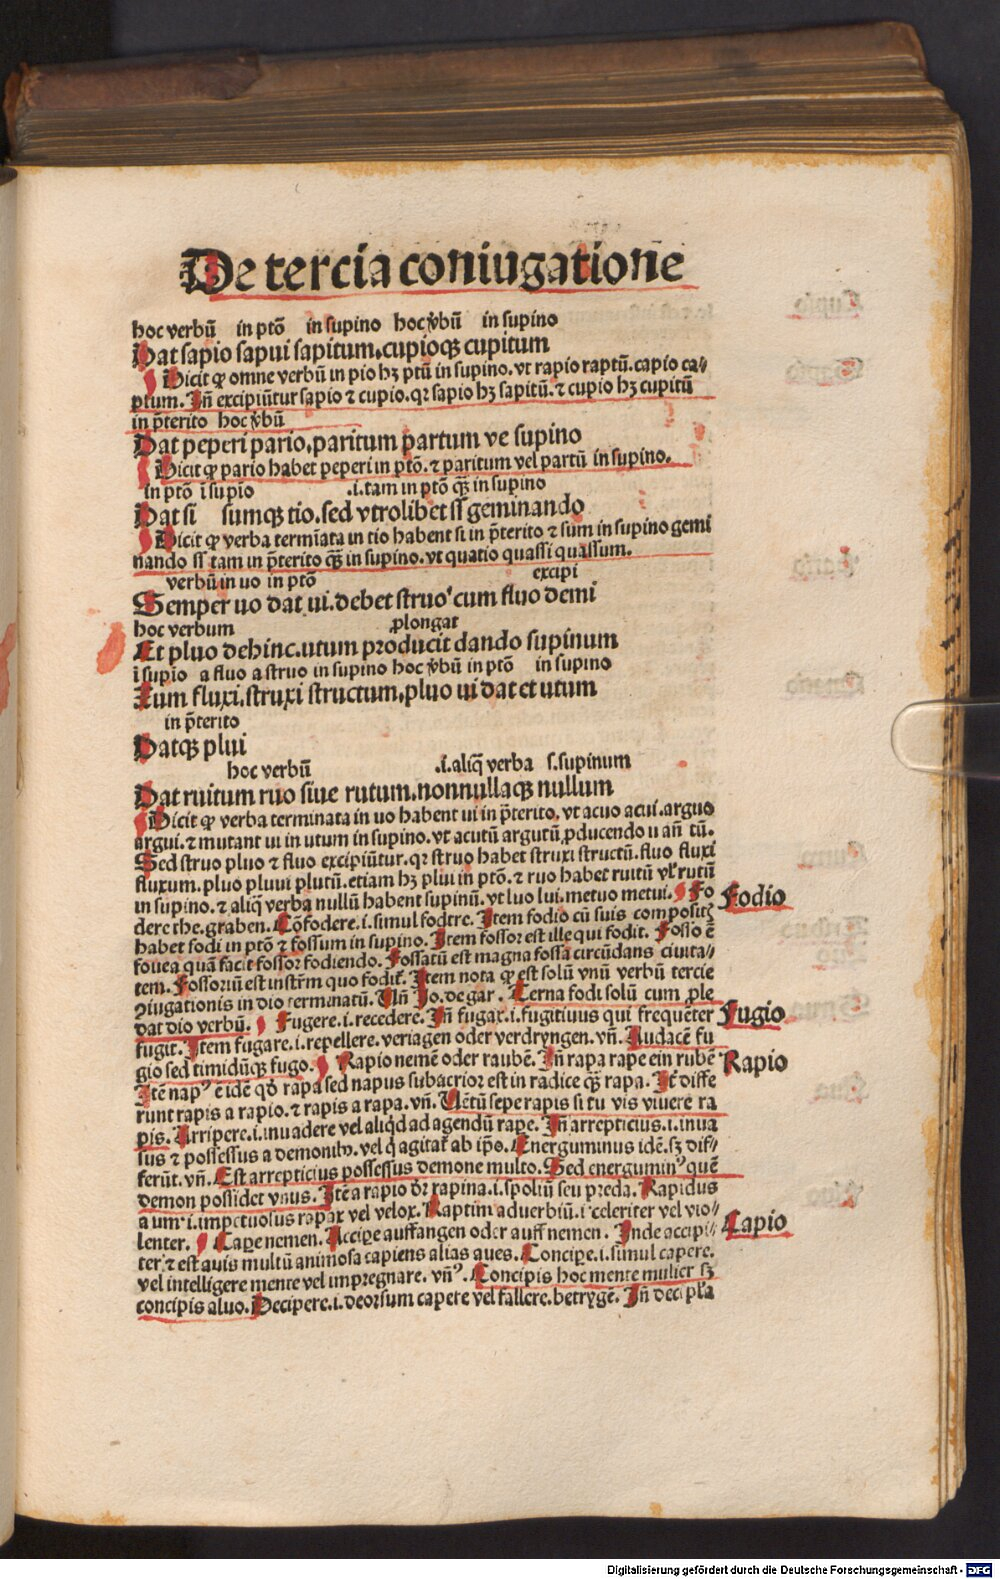 De tercia coniugatione
hoc verbū in ptō in supino hoc v̄bū in supino
Dat sapio sapui sapitum.cupioqꝫ cupitum
Dicit ꝙ omne verbū in pio hꝫ ptū in supino. vt rapio raptū. capio ca-
ptum. Iñ excipiūtur sapio ⁊ cupio. qꝛ sapio hꝫ sapitū. ⁊ cupio hꝫ cupitū
in p̄terito hoc v̄bū
Dat peperi pario, paritum partum ve supino
Dicit ꝙ pario habet peperi in ptō. ⁊ paritum vel partū in supino.
in ptō ī supīo .i. tam in ptō qꝫ̄ in supino
Dat si sumqꝫ tio.sed vtrolibet ss geminando
Dicit ꝙ verba termīata in tio habent si in p̄terito ⁊ sum in supino gemi
nando ss tam in p̄terito qꝫ̄ in supino. vt quatio quassi quassum.
verbū in uo in ptō excipi
Semper uo dat ui.debet struo cum fluo demi
hoc verbum ꝓlongat
Et pluo dehinc.utum producit dando supinum
ī supīo a fluo a struo in supino hoc v̄bū in ptō in supino
Xum fluxi.struxi structum,pluo ui dat et utum
in p̄terito
Datqꝫ plui
hoc verbū .i.aliq̄ verba s.supinum
Dat ruitum ruo siue rutum.nonnullaqꝫ nullum
Dicit ꝙ verba terminata in uo habent ui in p̄terito. vt acuo acui. arguo
argui. ⁊ mutant ui in utum in supino. vt acutū argutū ꝓducendo u añ tū.
Sed struo pluo ⁊ fluo excipiūtur. qꝛ struo habet struxi structū. fluo fluxi
fluxum. pluo pluui plutū. etiam hꝫ plui in ptō. ⁊ ruo habet ruitū vl̓ rutū
in supino. ⁊ aliq̄ verba nullū habent supinū. vt luo lui. metuo metui. Fo
dere the. graben. Cōfodere. i. simul fodere. Item fodio cū suis compositꝭ
habet fodi in ptō ⁊ fossum in supino. Item fossor est ille qui fodit. Fossio ē
fouea quā facit fossor fodiendo. Fossatū est magna fossa circūdans ciuita-
tem. Fossoriū est instr̄m quo fodit̉. Item nota ꝙ est solū vnū verbū tercie
ꝯiugationis in dio terminatū. Uñ Jo. de gar. Terna fodi solū cum ꝓle
dat dio verbū. Fugere. i. recedere. Iñ fugax. i. fugitiuus qui frequēter
fugit. Item fugare. i. repellere. veriagen oder verdryngen. vñ. Audacē fu
gio sed timidūqꝫ fugo. Rapio nemē oder raubē. Iñ rapa rape ein rubē
Itē napꝰ ē idē qd̓ rapa sed napus subacrior est in radice qꝫ̄ rapa. Itē diffe
runt rapis a rapio. ⁊ rapis a rapa. vñ. Uētū sepe rapis si tu vis viuere ra
pis. Arripere. i. inuadere vel aliqd̓ ad agendū rape. Iñ arrepticius. i. inua
sus ⁊ possessus a demonibꝰ. vel q̇ agitat̉ ab ip̄s. Energuminus idē. sꝫ dif-
ferūt. vñ. Est arrepticius possessus demone multo. Sed energuminꝰ quē
demon possidet vnus. Itē a rapio dr̄ rapina. i. spoliū seu preda. Rapidus
a um. i. impetuosus rapax vel velox. Raptim aduerbiū. i celeriter vel vio-
lenter. Capere nemen. Accipe auffangen oder auff nemen. Inde accipi-
ter. ⁊ est auis multū animosa capiens alias aues. Concipe. i. simul capere.
vel intelligere mente vel impregnare. vñꝰ. Concipis hoc mente mulier sꝫ
concipis aluo. Decipere. i. deorsum capere vel fallere. betrygē. Iñ decipl̓a
Fodio
Fugio
Rapio
Capio
Digitalisierung gefördert durch die Deutsche Forschungsgemeinschaft - DFG